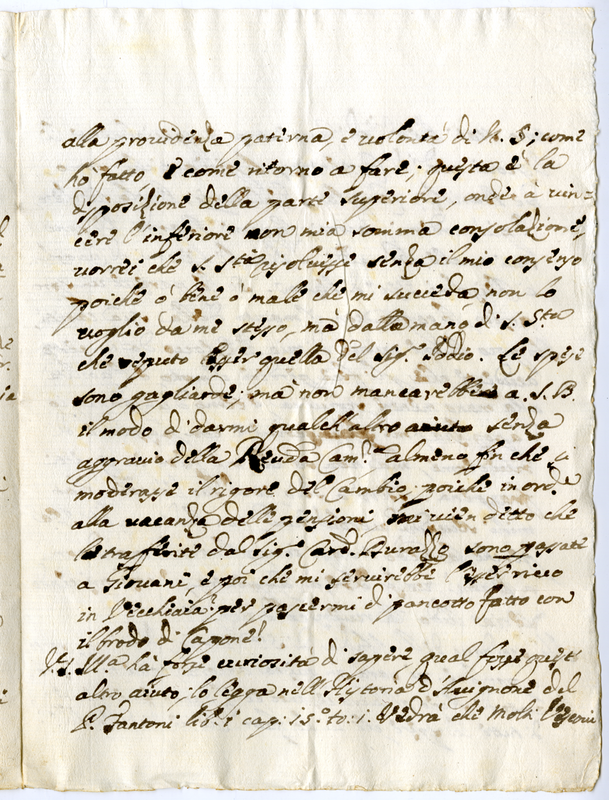 alla providenza paterna, e volontà di N. S; come
hò fatto e come ritorno a fare; questa è la
disposizione della parte superiore, onde à vin=
cere l'inferiore con mia somma consolazione,
vorrei che S. Stà risolvesse senza il mio consenso
poiche ò bene ò male che mi succeda, non lo
voglio da me stesso, mà dalla mano di S. Stà
che reputo esser quella del Sigr Iddio. Le spese
sono gagliarde; mà non mancarebbe a S. B.
il modo di darmi qualch'altro aiuto senza
aggravio della Revda Cama almeno fin che si
moderasse il rigore del Cambio; poiche in ordne
alla vacanza delle pensioni mi vien detto che
le trasferite dal Sigr Card. Durazzo sono passate
a Giovani, e poi che mi servirebbe l'esser ricco
in Vecchiaia? per pascermi di pancotto fatto con
il brodo di Capone!
V. S. Illma hà forse curiosità di sapere qual fosse quest'
altro aiuto; lo legga nell'Historia d'Avignone del
P. Fantoni lib: 1 cap: 15. to: 1. Vedrà che Molti